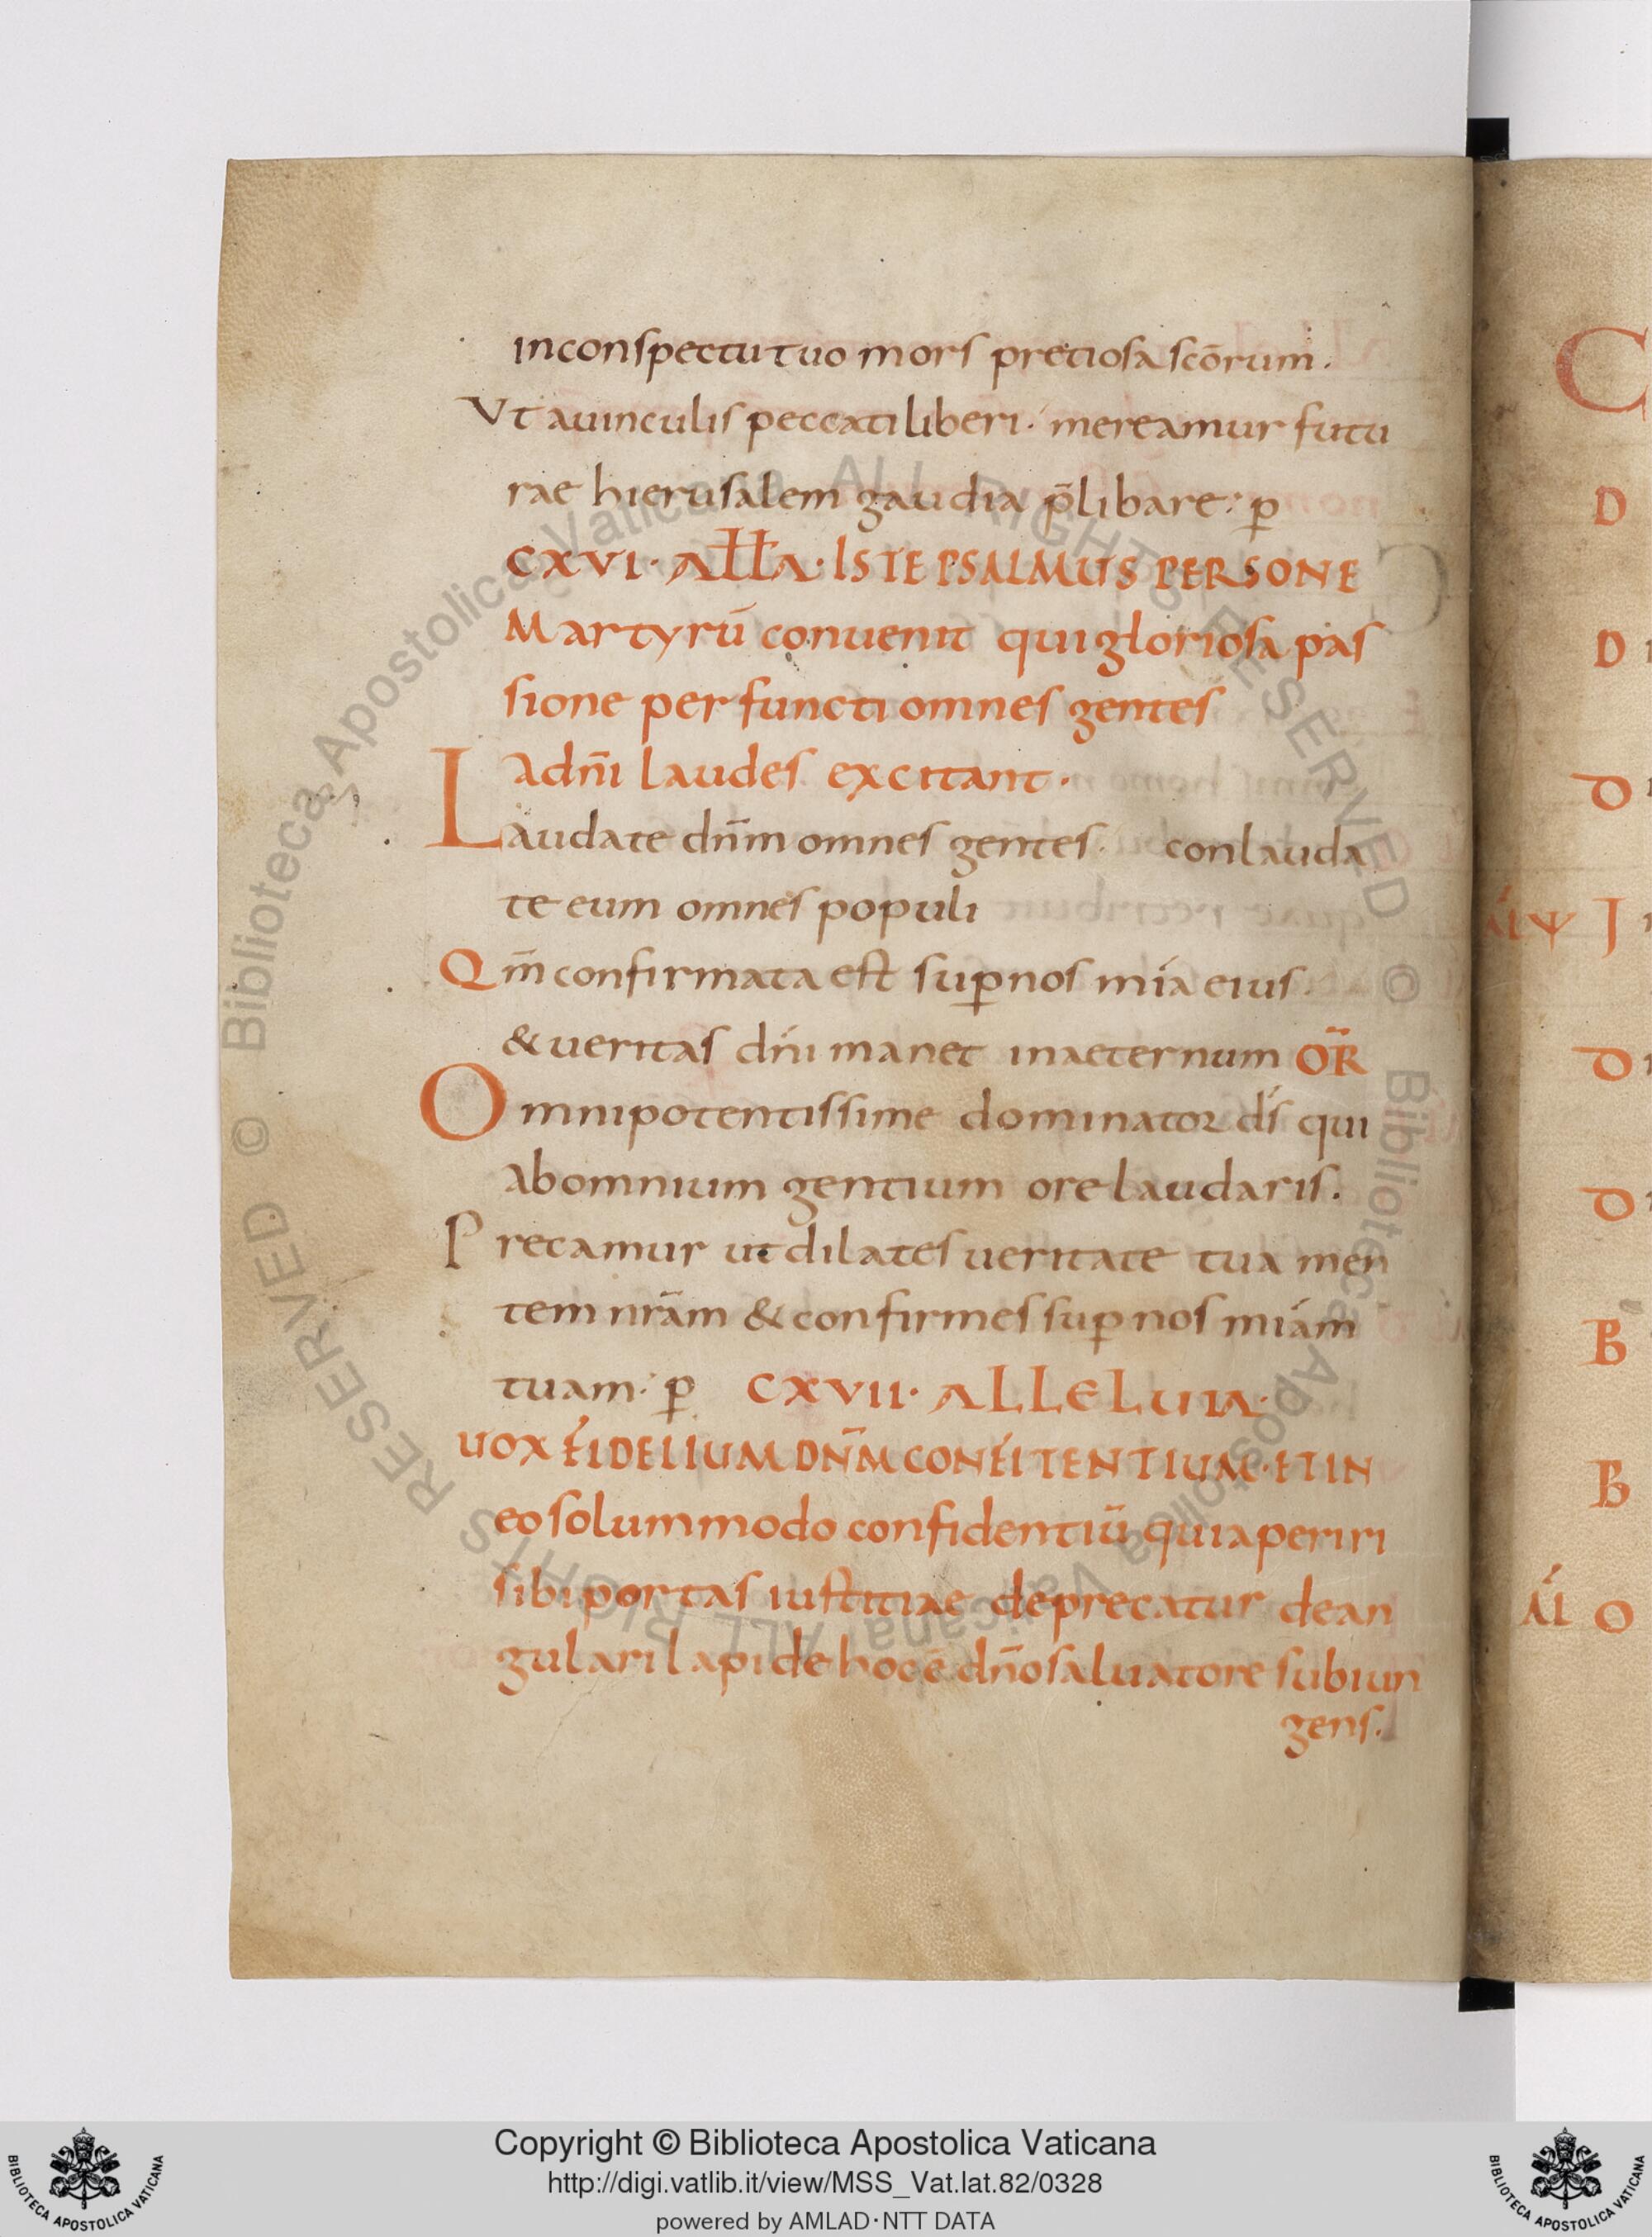 inconspectu tuo mors pretiosa scōrum.
Ut auinculis peccati liberi. mereamur futu
rae hierusalem gaudia p̄libare: ꝑ
CXVI. ALŁA. ISTE PSALMUS PERSONE
Martyrū conuenit qui gloriosa pas
sione perfuncti omnes gentes
adn̄i laudes excitant.
Laudate dn̄m omnes gentes. conlauda
te eum omnes populi
Qm̄ confirmata est suꝑ nos mīa eius.
& ueritas dn̄i manet inaeternum OR̄
Omnipotentissime dominator ds̄ qui
abomnium gentium ore laudaris.
Precamur ut dilates ueritate tua men
tem nrām & confirmes suꝑ nos miām
tuam: ꝑ CXVII. ALLELUIA.
UOX FIDELIUM DN̄M CONFITENTIUM. ET IN
eo solummodo confidentiū quiaperiri
sibi portas iustitiae deprecatur dean
gulari lapide hoc ē dn̄o saluatore subiun
gens.
C
D
D
D
AĹ Ψ J
D
D
B
B
AĹ O
© Biblioteca Apostolica Vaticana, ALL RIGHTS RESERVED © Biblioteca Apostolica Vaticana, ALL RIGHTS RESERVED
Copyright © Biblioteca Apostolica Vaticana
http://digi.vatlib.it/view/MSS_Vat.lat.82/0328
powered by AMLAD·NTT DATA
BIBLIOTECA APOSTOLICA VATICANA
BIBLIOTECA APOSTOLICA VATICANA